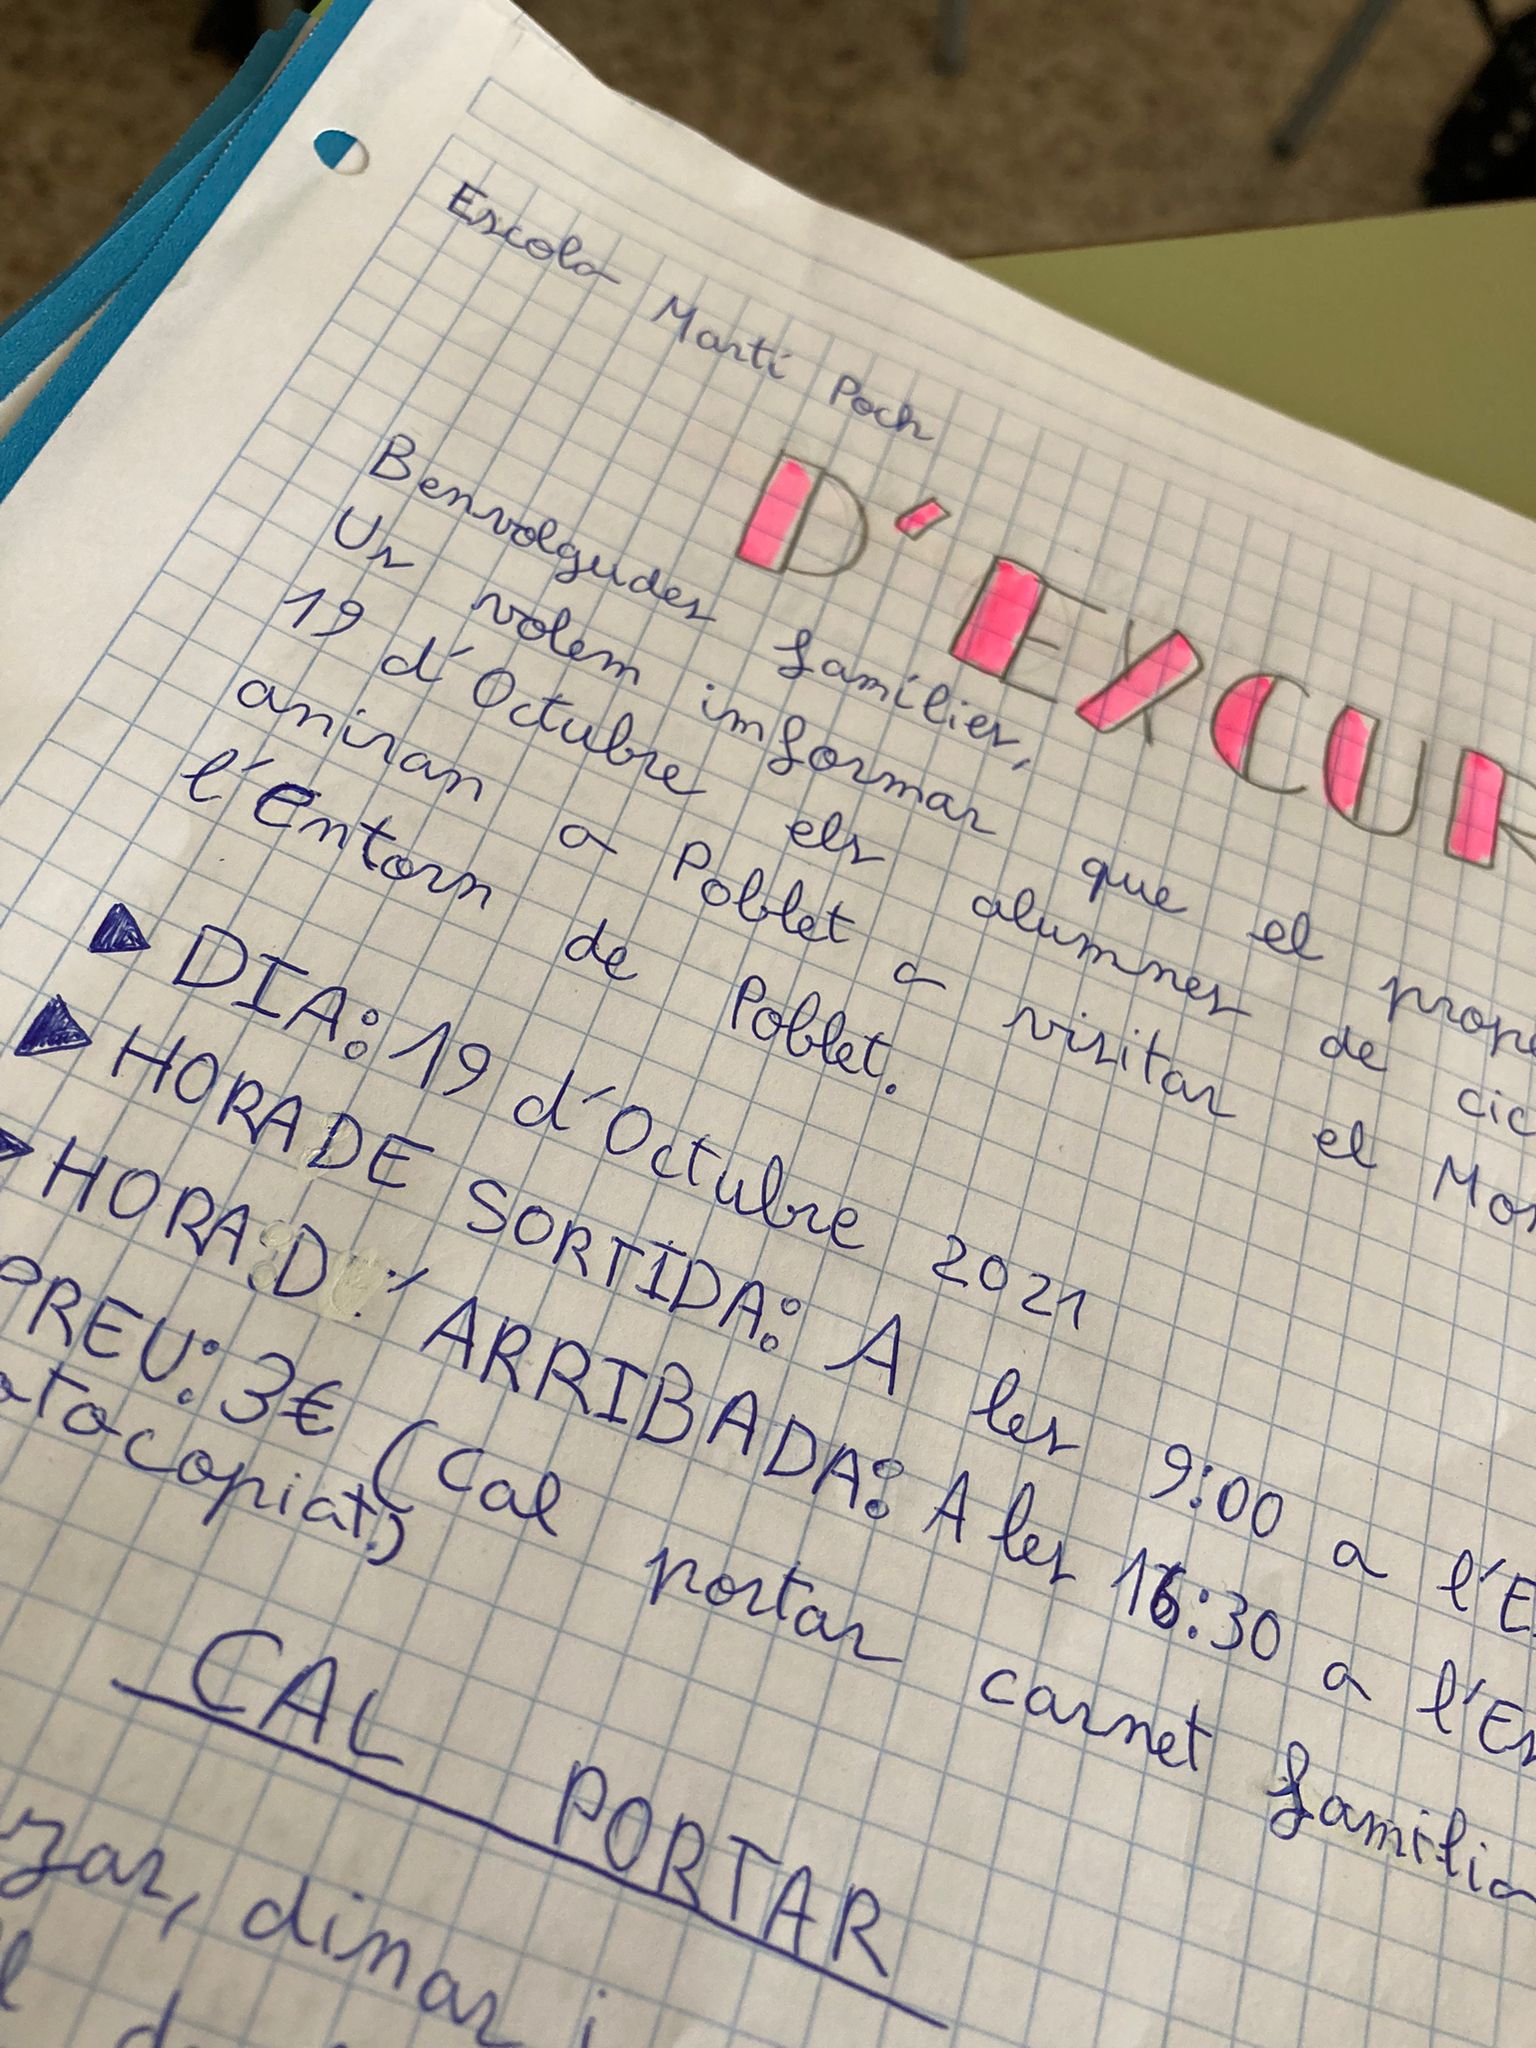 Escola Martí Poch
D'EXCUR
Benvolgudes famílies,
Us volem informar que el prope
19 d'Octubre els alumnes de cic
aniran a Poblet a visitar el Mon
l'Entorn de Poblet.
DIA: 19 d'Octubre 2021
HORA DE SORTIDA: A les 9:00 a l'Es
HORA D'ARRIBADA: A les 16:30 a l'Es
PREU: 3€ (Cal portar carnet familia
otocopiat.)
CAL PORTAR
zar, dinar i